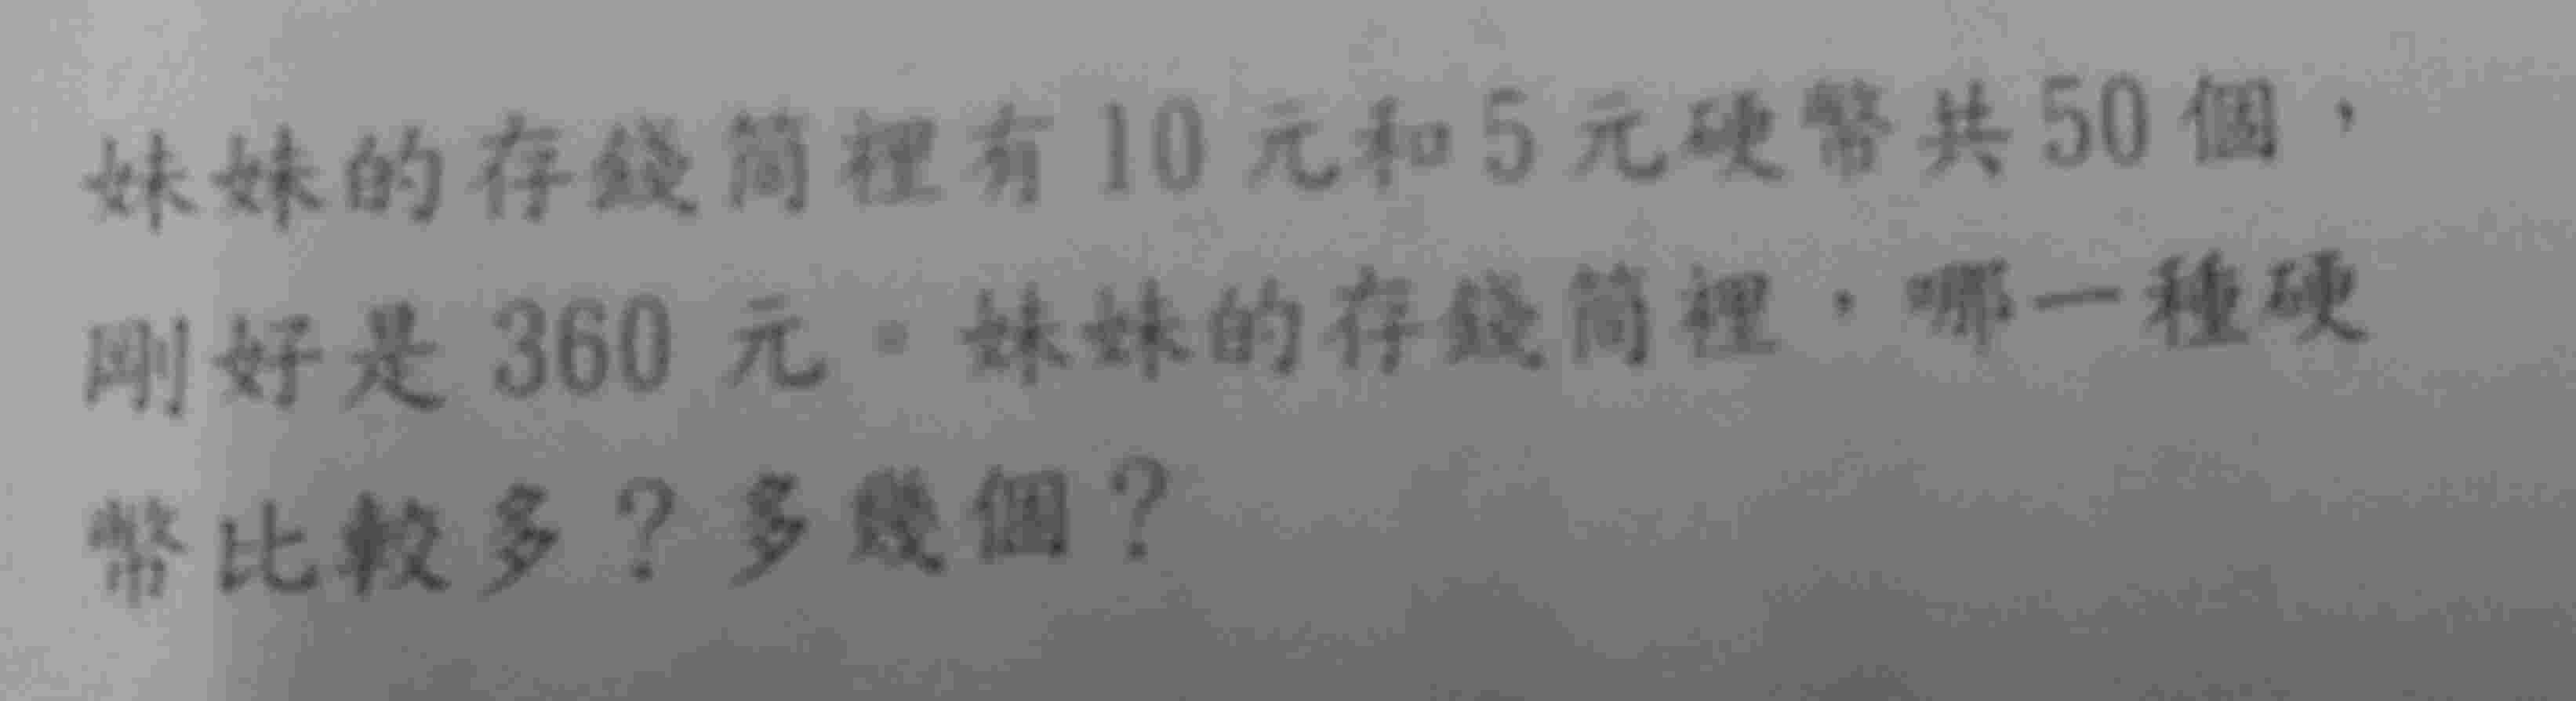 妹妹的存錢筒裡有10元和5元硬幣共50個，
剛好是360元。妹妹的存錢筒裡，哪一種硬
幣比較多？多幾個？